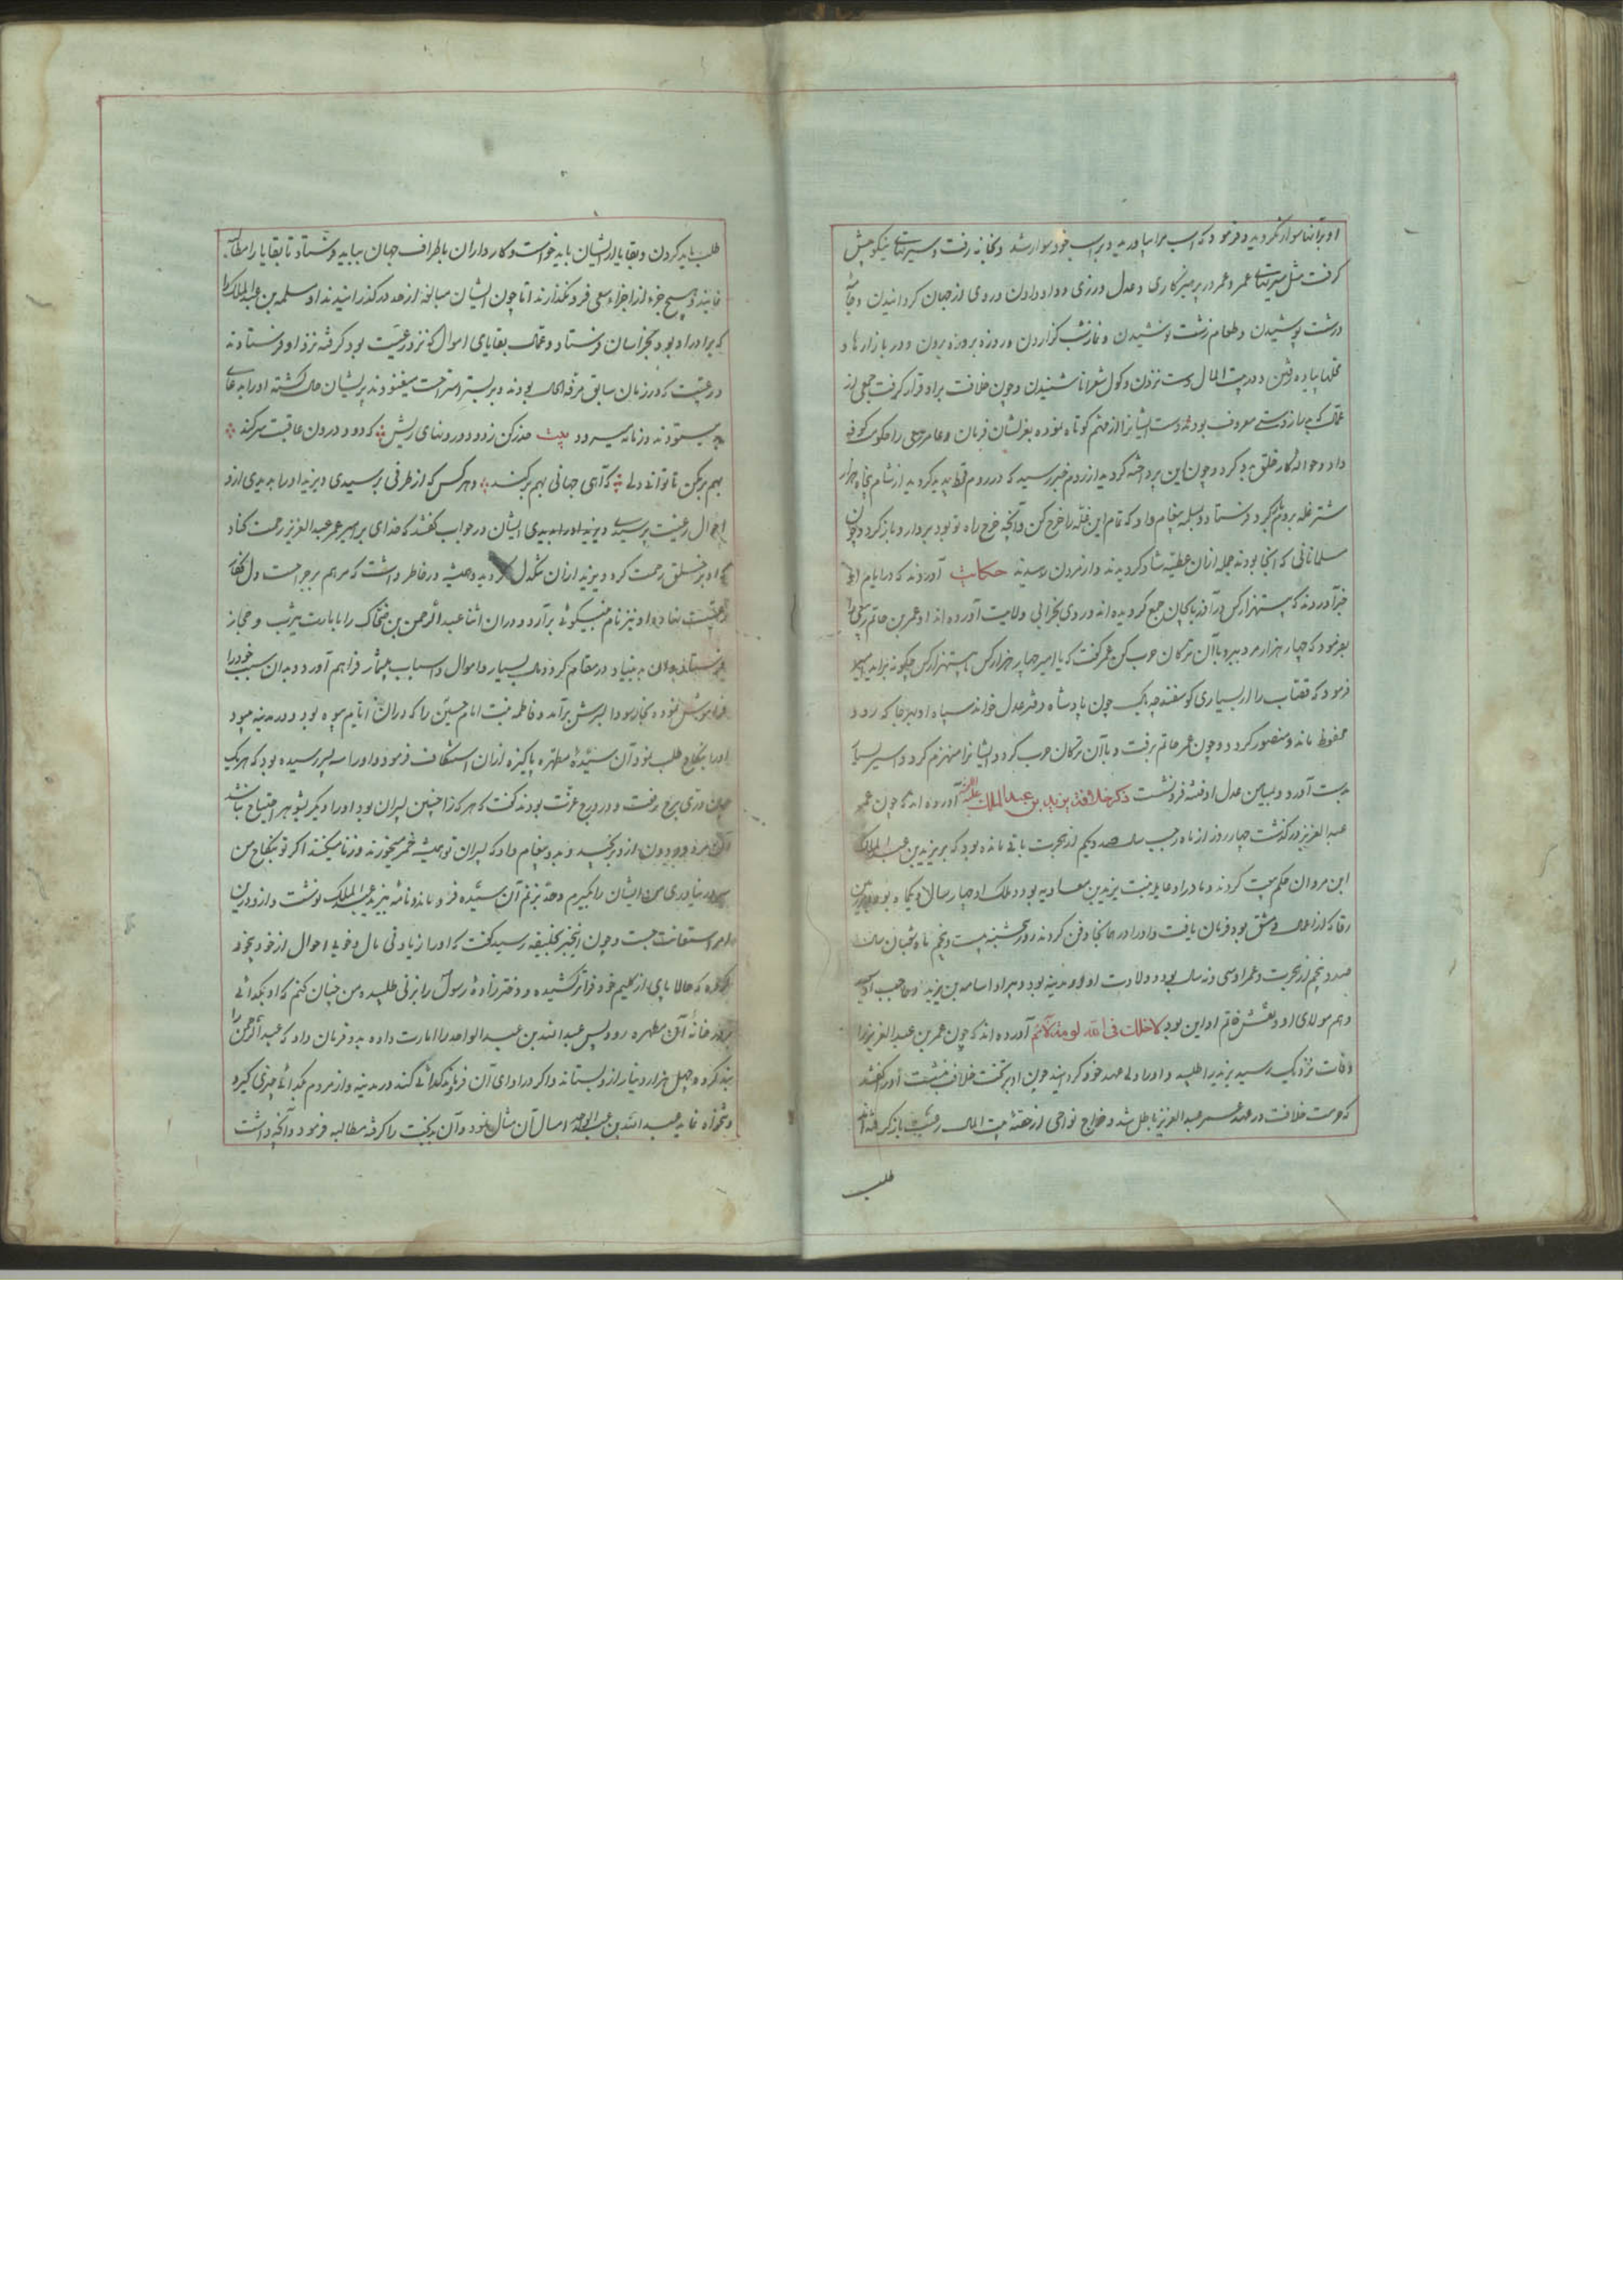 او بر آنها سوار نگردید و فرمود که اسب مرا بیاورید و بر اسب خود سوار شد و بخانه رفت و سیرتهای نیکو پیش
گرفت مثل سیرتهای عمر و عمر در پرهیزکاری و عدل ورزی و داد دادن و روی از جهان گردانیدن و جامه
درشت پوشیدن و طعام زشت نوشیدن و نماز شب گزاردن و روزه بروزه بردن و در بازارها و
محلتها پیاده رفتن و در بیت المال دست نزدن و کول شعرا ناشنیدن و چون خلافت بر او قرار گرفت جمعی از
عمال که بدرازدستی معروف بودند دست ایشانرا از مهم کوتاه نموده بعزلشان فرمان و عامر ربعی را حکومت کوفه
داد و حواله کار خلق بدو کرد و چون ازین پرداخته گردید از روم خبر رسید که در روم قحط پدید گردید از شام پنجاه هزار
شتر غله بروم فرستاد و بمسلمه پیغام داد که تمام این غله را خرج کن و آنچه خرج راه تو بود بردار و بازگرد و چون
مسلمانانی که آنجا بودند جمله ازان عطیه شاد گردیدند و از مردن رسیدند حکایت آوردند که در ایام او
خبر آوردند که بیست هزار کس در آذربایجان جمع گردیده اند و روی بخرابی ولایت آورده اند او عمر بن حاتم ربعی را
بفرمود که چهار هزار مرد ببر و با آن ترکان حرب کن عمر گفت که یا امیر چهار هزار کس با بیست هزار کس چگونه برآید
فرمود که قصاب را از بسیاری گوسفند چه باک چون پادشاه دفتر عدل خواند سپاه او بهر جا که رود
محفوظ ماند و منصور گردد و چون عمر حاتم برفت و با آن ترکان حرب کرد و ایشانرا منهزم کرد و اسیر بسیار
بدست آورد و بمیامن عدل او فتنه فرونشست ذکر خلافت یزید بن عبد الملک علیه آورده اند که چون عمر
عبد العزیز درگذشت چهار روز از ماه رجب سال صد و یکم از هجرت باقی مانده بود که بر یزید بن عبد الملک
ابن مروان حکم بیعت کردند و مادر او عاتکه بنت یزید بن معاویه بود و ملک او چهار سال و یکماه بود
رقا که از اعمال دمشق بود فرمان یافت و او را در همانجا دفن کردند روز پنجشنبه بیست و پنجم ماه شعبان سال
صد و پنجم از هجرت و عمر او سی و نه سال بود و ولادت او در مدینه بود و دبیر او اسامه بن یزید و حاجب او
و هم مولای او و نقش خاتم او این بود لا اخلت فی الله لومة لائم آورده اند که چون عمر بن عبد العزیز را
وفات نزدیک رسید یزید را طلبید و او را ولی عهد خود گردانید چون او بر تخت خلافت نشست او را گفتند
که حرمت خلافت در عهد عمر عبد العزیز باطل شد و خراج نواحی از حقه بیت المال رعیت بازگرفته اند
طلب
طلب باید کردن و بقایا از ایشان باید خواست و کارداران باطراف جهان بباید فرستاد تا بقایا را مطالبه
نمایند و هیچ جزء از اجزاء سعی فرو نگذارند اما چون ایشان مبالغه از حد در گذرانیدند او مسلمه بن عبد الملک را
که برادر او بود بخراسان فرستاد و عمال بقایای اموال که نزد رعیت بود گرفته نزد او فرستادند
و رعیت که در زمان سابق مرفه الحال بودند و بر بستر استراحت میغنودند پریشان حال گشته او را بدعای
بد میستودند و زمانه میسرود بیت حذر کن ز دود درونهای ریش که دود درون عاقبت سر کند
بهم بر مکن تا توانی دلی که آهی جهانی بهم بر کند و هر کس که از طرفی برسیدی و یزید او را بدیدی ازو
احوال رعیت پرسیدی و یزید او را بدیدی ایشان در جواب گفتند که خدای بر امیر عمر عبد العزیز رحمت کناد
که او بر خلق رحمت کرد و یزید ازان تنگدل گردید و همیشه در خاطر داشت که مرهم بر جراحت دل فگار
رعیت نهاده او نیز نام بنیکوئی برآرد و دران اثنا عبد الرحمن بن ضحاک را بامارت یثرب و حجاز
فرستاد و آن بد بنیاد در مقام کرد و مال بسیار و اموال و اسباب بیشمار فراهم آورد و بدان سبب خود را
فراموش نموده بخار سودا بسرش برآمد و فاطمه بنت امام حسین را که دران ایام بیوه بود و در مدینه میبود
او را بنکاح طلب نمود آن سیده مطهره پاکیزه ازان استنکاف فرمود و او را سه پسر رسیده بود که هریک
چون دری برج رفعت و در درج عزت بودند گفت که هر کرا چنین پسران بود او را دیگر بشوهر احتیاج نباشد
آن مرد دون ازو برنجید و بدو پیغام داد که پسران تو همیشه خمر میخورند و زنا میکنند اگر تو بنکاح من
سر در نیاوری من ایشان را بگیرم و حد بزنم آن سیده فروماند و نامه بیزید عبد الملک نوشت و ازو درین
امر استعانت جست و چون این خبر بخلیفه رسید گفت که او را زیادتی مال و خوبی احوال از خود بیخود
کرده که حالا پای از گلیم خود فراتر کشیده و دخترزاده رسول را بزنی طلبیده من چنان کنم که او بگدائی
بدر خانه آن مطهره رود پس عبد الله بن عبد الواحد را امارت داده بدو فرمان داد که عبد الرحمن را
بند کرده و چهل هزار دینار ازو بستاند و اگر در ادای آن فروماند گدائی کند در مدینه و از مردم بگدائی چیزی گیرد
و عبد الله بن عبد الواحد امتثال آن مثال نمود و آن بدبخت را گرفته مطالبه فرمود و آنچه داشت